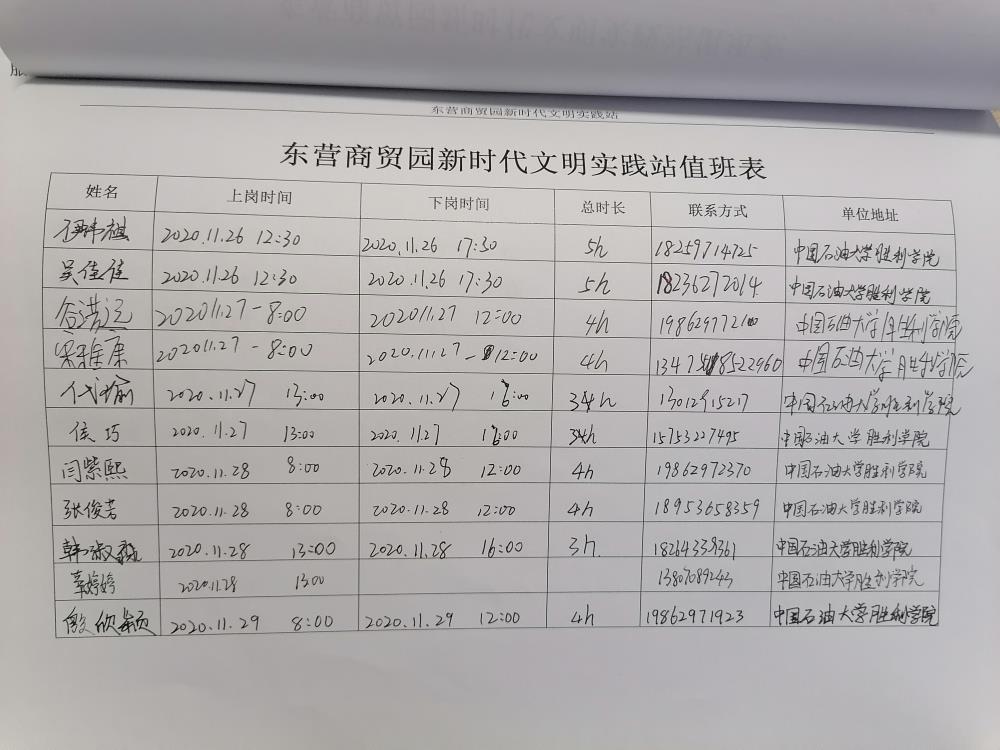 东营商贸园新时代文明实践站
东营商贸园新时代文明实践站值班表
姓名 上岗时间 下岗时间 总时长 联系方式 单位地址
伊祎祖 2020.11.26 12:30 2020.11.26 17:30 5h 18259714725 中国石油大学胜利学院
吴佳佳 2020.11.26 12:30 2020.11.26 17:30 5h 18236272014 中国石油大学胜利学院
谷浩远 20201127-8:00 20201127 12:00 4h 19862977210 中国石油大学胜利学院
2020.11.27-8:00 2020.11.27-12:00 4h 中国石油大学胜利学院
代瑜 2020.11.27 13:00 2020.11.27 中国石油大学胜利学院
侯巧 2020.11.27 13:00 2020.11.27 15753227495 中国石油大学胜利学院
闫紫熙 2020.11.28 8:00 2020.11.28 12:00 4h 19862972370 中国石油大学胜利学院
张俊芳 2020.11.28 8:00 2020.11.28 12:00 4h 18953658359 中国石油大学胜利学院
韩淑 2020.11.28 13:00 2020.11.28 16:00 3h. 中国石油大学胜利学院
婷婷 2020.11.28 13:00 13807089243 中国石油大学胜利学院
殷欣颖 2020.11.29 8:00 2020.11.29 12:00 4h 19862971923 中国石油大学胜利学院